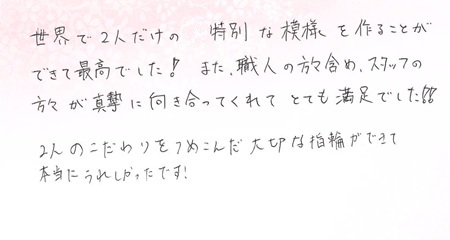 世界で2人だけの 特別な模様を作ることが
できて最高でした! また、職人の方々含め、スタッフの
方々が真摯に向き合ってくれてとても満足でした!!
2人のこだわりをつめこんだ大切な指輪ができて
本当にうれしかったです!